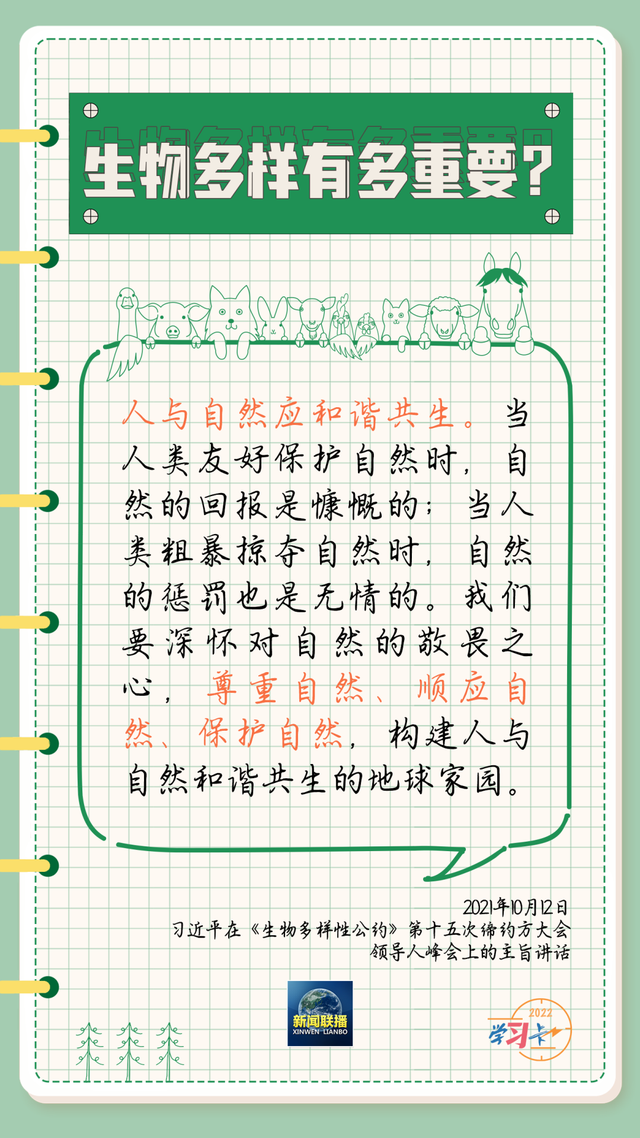 生物多样有多重要？
人与自然应和谐共生。当
人类友好保护自然时，自
然的回报是慷慨的；当人
类粗暴掠夺自然时，自然
的惩罚也是无情的。我们
要深怀对自然的敬畏之
心，尊重自然、顺应自
然、保护自然，构建人与
自然和谐共生的地球家园。
2021年10月12日
习近平在《生物多样性公约》第十五次缔约方大会
领导人峰会上的主旨讲话
新闻联播
XINWEN LIANBO
2022
学习卡